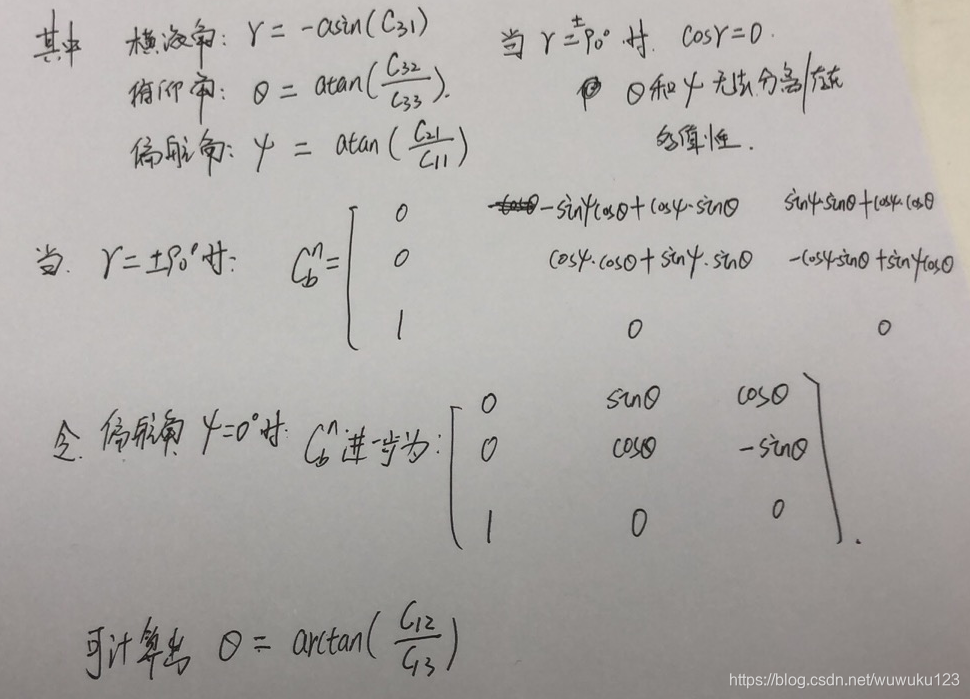 其中 横滚角: γ = -asin(C31)
俯仰角: θ = atan(C32/C33).
偏航角: ψ = atan(C21/C11)
当 γ=±90° 时. cosγ=0.
θ和ψ 无法分离/存在
多值性.
当. γ=±90°时: Cbn= [ 0 -sinψcosθ+cosψ·sinθ sinψ·sinθ+cosψ·cosθ
0 cosψ·cosθ+sinψ·sinθ -cosψsinθ+sinψcosθ
1 0 0
令 偏航角 ψ=0°时: Cbn 进一步为: [ 0 sinθ cosθ
0 cosθ -sinθ
1 0 0 ].
可计算出 θ = arctan(C12/C13)
https://blog.csdn.net/wuwuku123